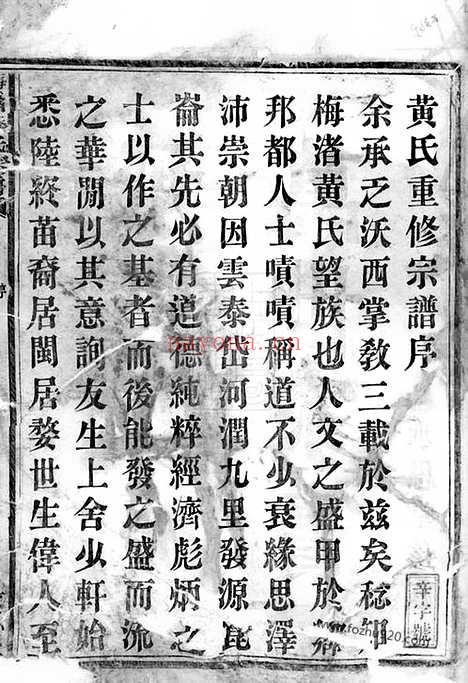 黃氏重修宗譜序
余承乏沃西掌教三載於兹矣稔卽
梅渚黃氏望族也人文之盛甲於鄉
邦都人士嘖嘖稱道不少衰緣思澤
沛崇朝因雲泰岱河潤九里發源崑
崙其先必有道德純粹經濟彪炳之
士以作之基者而後能發之盛而流
之華閒以其意詢友生上舍少軒始
悉陸終苗裔居閩居婺世生偉人至
章字號
nayona.cn
www.fozhu920.com